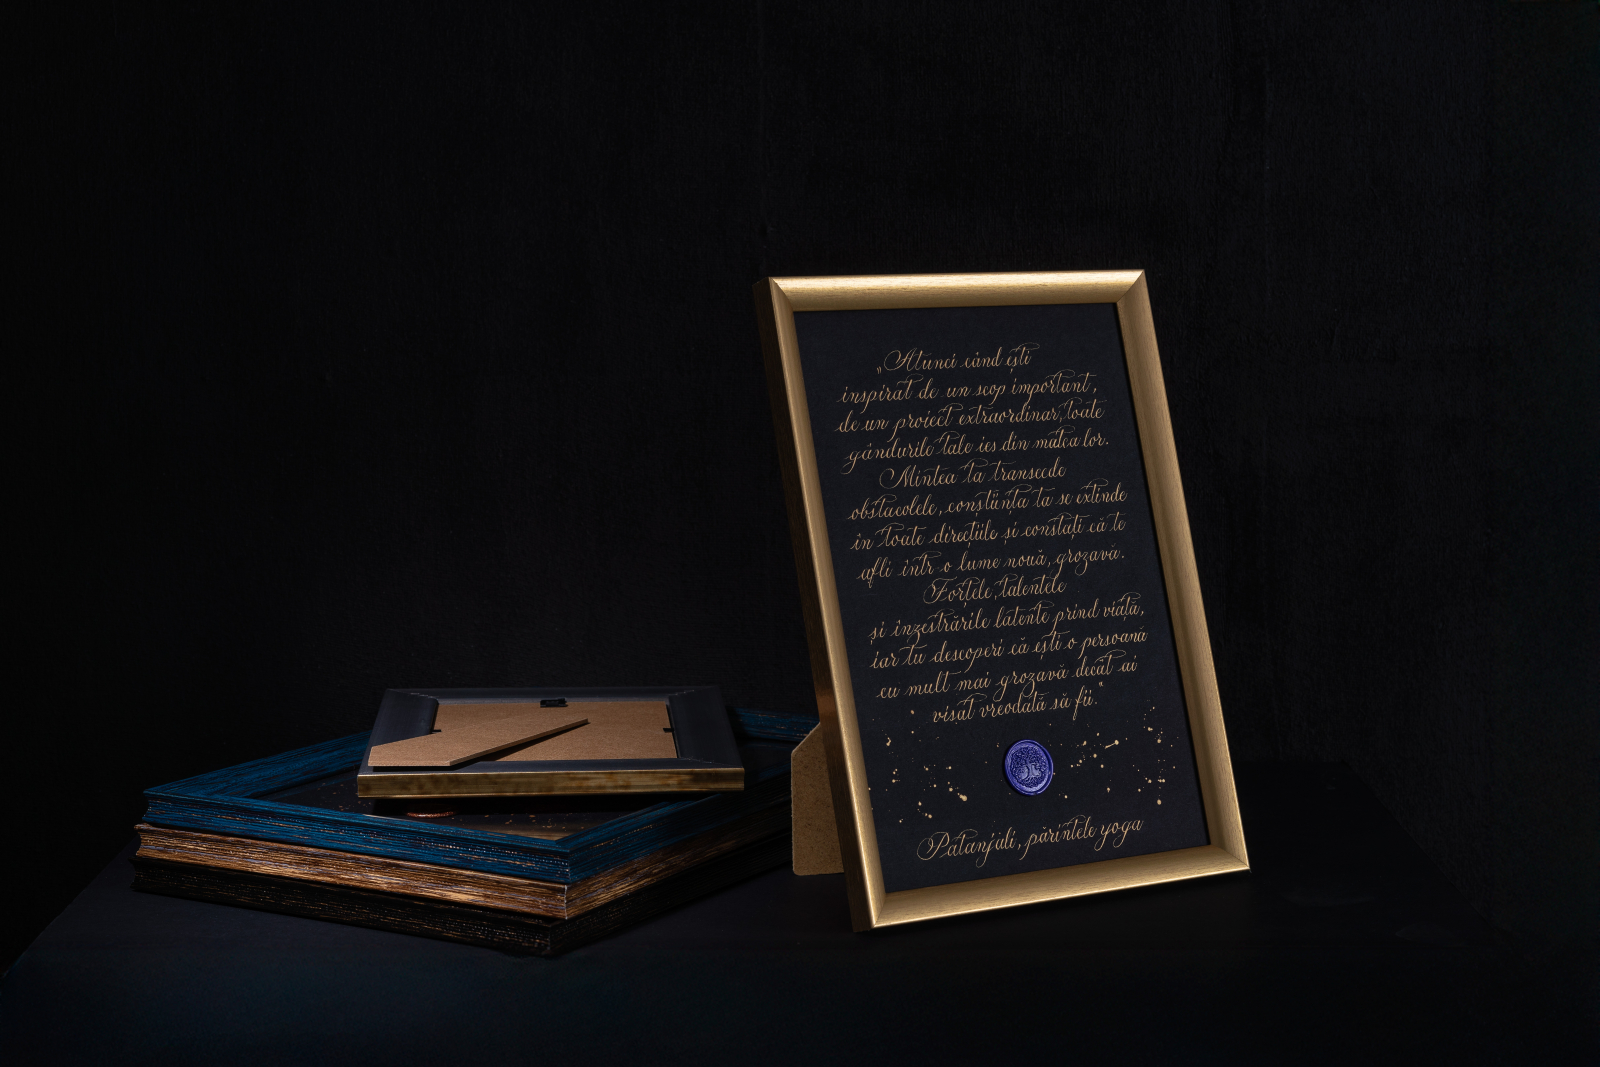 „Atunci când ești
inspirat de un scop important,
de un proiect extraordinar, toate
gândurile tale ies din matca lor.
Mintea ta transcede
obstacolele, conștiința ta se extinde
în toate direcțiile și constați că te
afli într-o lume nouă, grozavă.
Forțele, talentele
și înzestrările latente prind viață,
iar tu descoperi că ești o persoană
cu mult mai grozavă decât ai
visat vreodată să fii."
Patanjali, părintele yoga